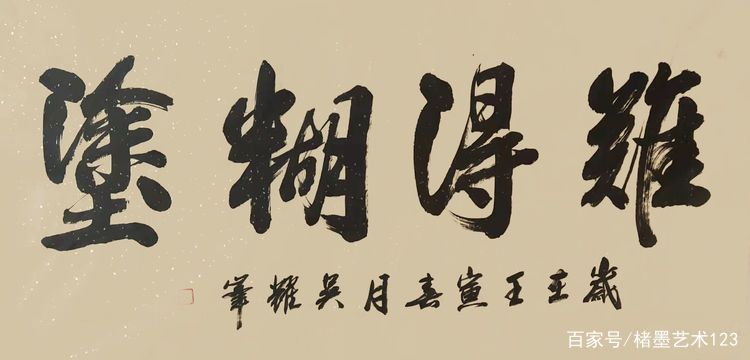 難得糊塗
歲在壬寅春月吴耀
百家号/楮墨艺术123